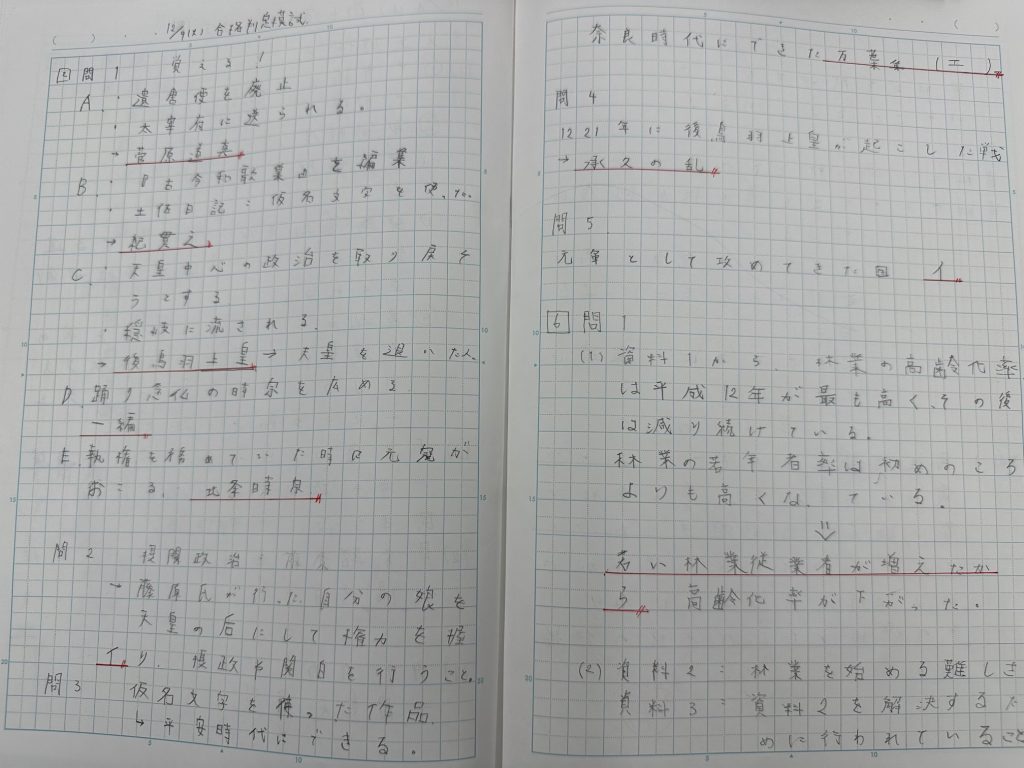 12/9(火) 合格判定模試
5 問1 覚える!
A.・遣唐使を廃止
・太宰府に送られる。
→ 菅原道真
B.・古今和歌集を編集
・土佐日記:仮名文字を使った。
→ 紀貫之
C.・天皇中心の政治を取り戻そ
うとする
・隠岐に流される。
→ 後鳥羽上皇 → 天皇を退いた人
D.踊り念仏の時宗を広める
一遍
E.執権を務めていた時に元寇が
おこる。 北条時宗
問2 摂関政治:
→ 藤原氏が行った自分の娘を
天皇の后にして権力を握
イ り、摂政や関白を行うこと。
問3 仮名文字を使った作品
↳ 平安時代にできる。
奈良時代にできた万葉集 (エ)
問4
1221年に後鳥羽上皇が起こした戦
→ 承久の乱
問5
元軍として攻めてきた国 イ
6 問1
(1) 資料1から、林業の高齢化率
は平成12年が最も高く、その後
は減り続けている。
林業の若年者率は初めのころ
よりも高くなっている。
⇓
若い林業従業者が増えたか
ら 高齢化率が下がった。
(2) 資料2:林業を始める難しさ
資料3:資料2を解決するた
めに行われていること